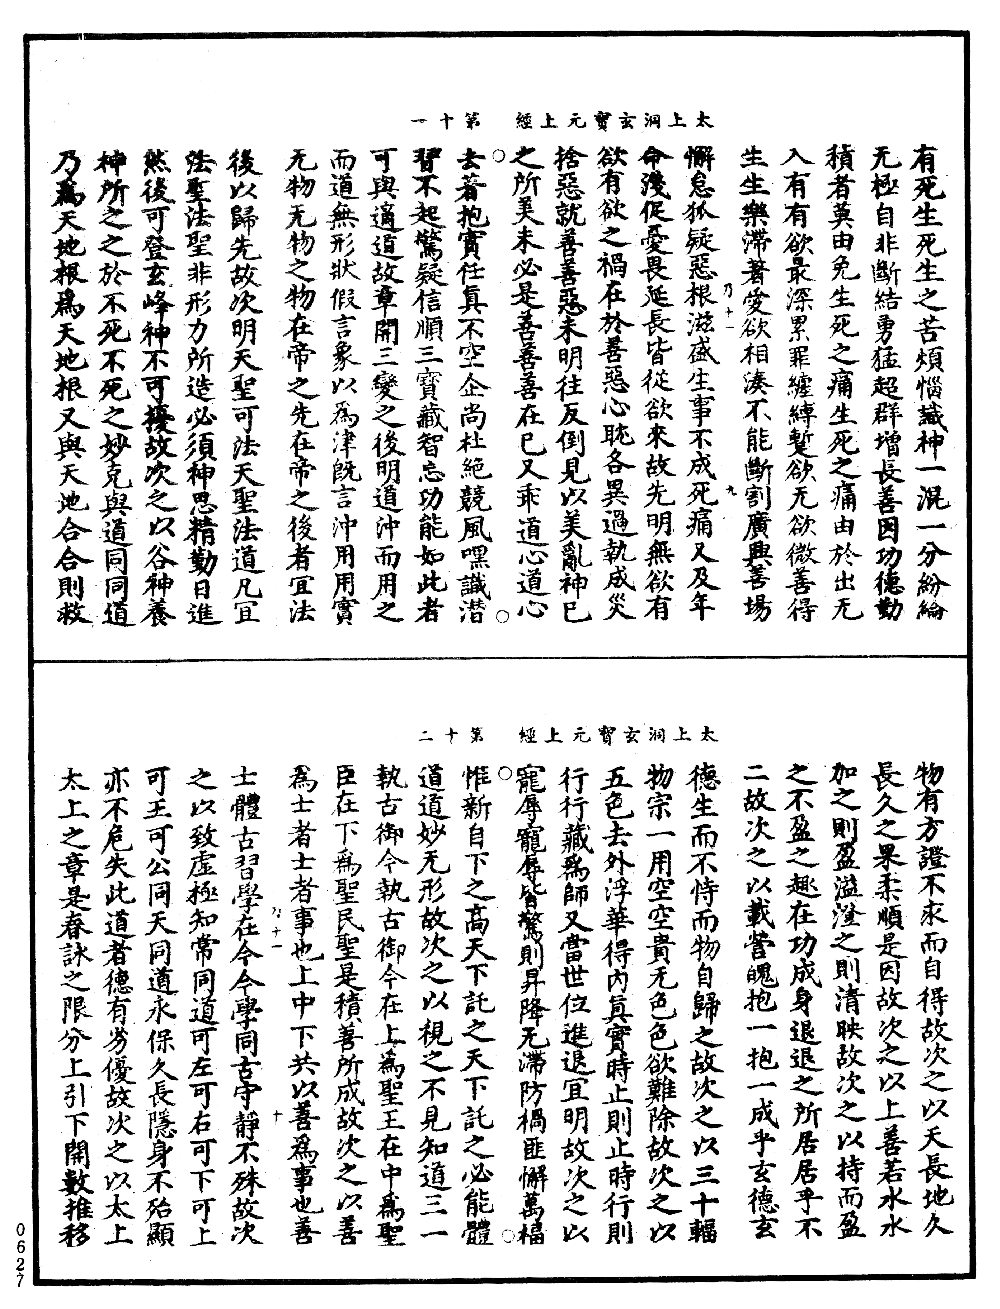 太上洞玄寶元上經　第十一
有死生死生之苦煩惱識神一混一分紛綸
无極自非斷結勇猛超群增長善因功德勤
積者莫由免生死之痛生死之痛由於出无
入有有欲最深累罪纏縛蹔欲无欲微善得
生生樂滯著愛欲相湊不能斷割廣興善場
懈怠狐疑惡根滋盛生事不成死痛又及年
命淺促憂畏延長皆從欲來故先明無欲有
欲有欲之禍在於善惡心眺各異過執成災
捨惡就善善惡未明往反倒見以美亂神已
之所美未必是善善善在已又乖道心道心
去著抱實任真不空企尚杜絕競風嘿識潛
習不起驚疑信順三寶藏智忘功能如此者
可與適道故章開三變之後明道沖而用之
而道無形狀假言象以為津既言沖用用實
无物无物之物在帝之先在帝之後者宜法
後以歸先故次明天聖可法天聖法道凡宜
法聖法聖非形力所造必須神思精勤日進
然後可登玄峰神不可擾故次之以谷神養
神所之之於不死不死之妙克與道同同道
乃為天地根為天地根又與天地合合則救
太上洞玄寶元上經　第十二
物有方證不求而自得故次之以天長地久
長久之果柔順是因故次之以上善若水水
加之則盈溢澄之則清映故次之以持而盈
之不盈之趣在功成身退退之所居居乎不
二故次之以載營魄抱一抱一成乎玄德玄
德生而不恃而物自歸之故次之以三十輻
物宗一用空空貴无色色欲難除故次之以
五色去外浮華得內真實時止則止時行則
行行藏為師又當世位進退宜明故次之以
寵辱寵辱皆驚則昇降无滯防禍匪懈萬福
惟新自下之高天下託之天下託之必能體
道道妙无形故次之以視之不見知道三一
執古御今執古御今在上為聖王在中為聖
臣在下為聖民聖是積善所成故次之以善
為士者士者事也上中下共以善為事也善
士體古習學在今今學同古守靜不殊故次
之以致虛極知常同道可左可右可下可上
可王可公同天同道永保久長隱身不殆顯
亦不危失此道者德有劣優故次之以太上
太上之章是春詠之限分上引下開數推移
0627